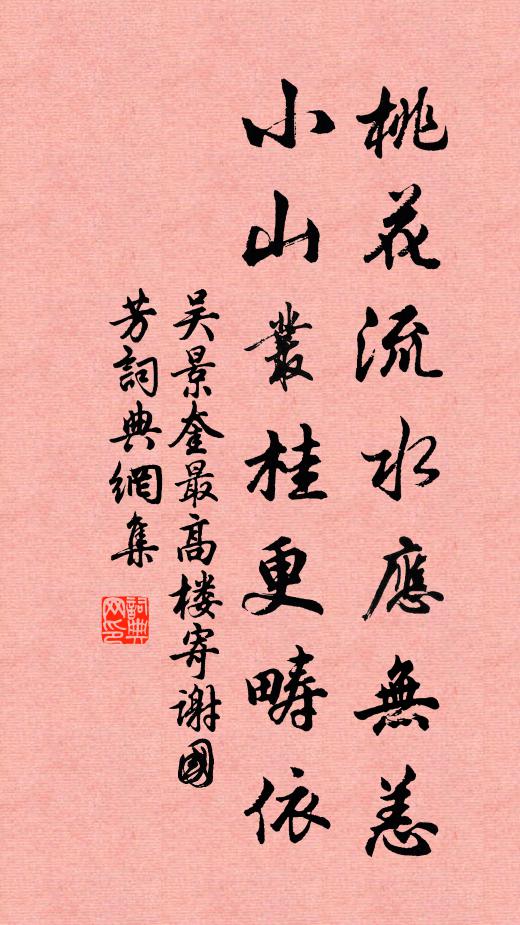 桃花流水應無恙
小山叢桂更疇依
吴景奎最高楼寄謝國
芳詞典網集
詞典网印